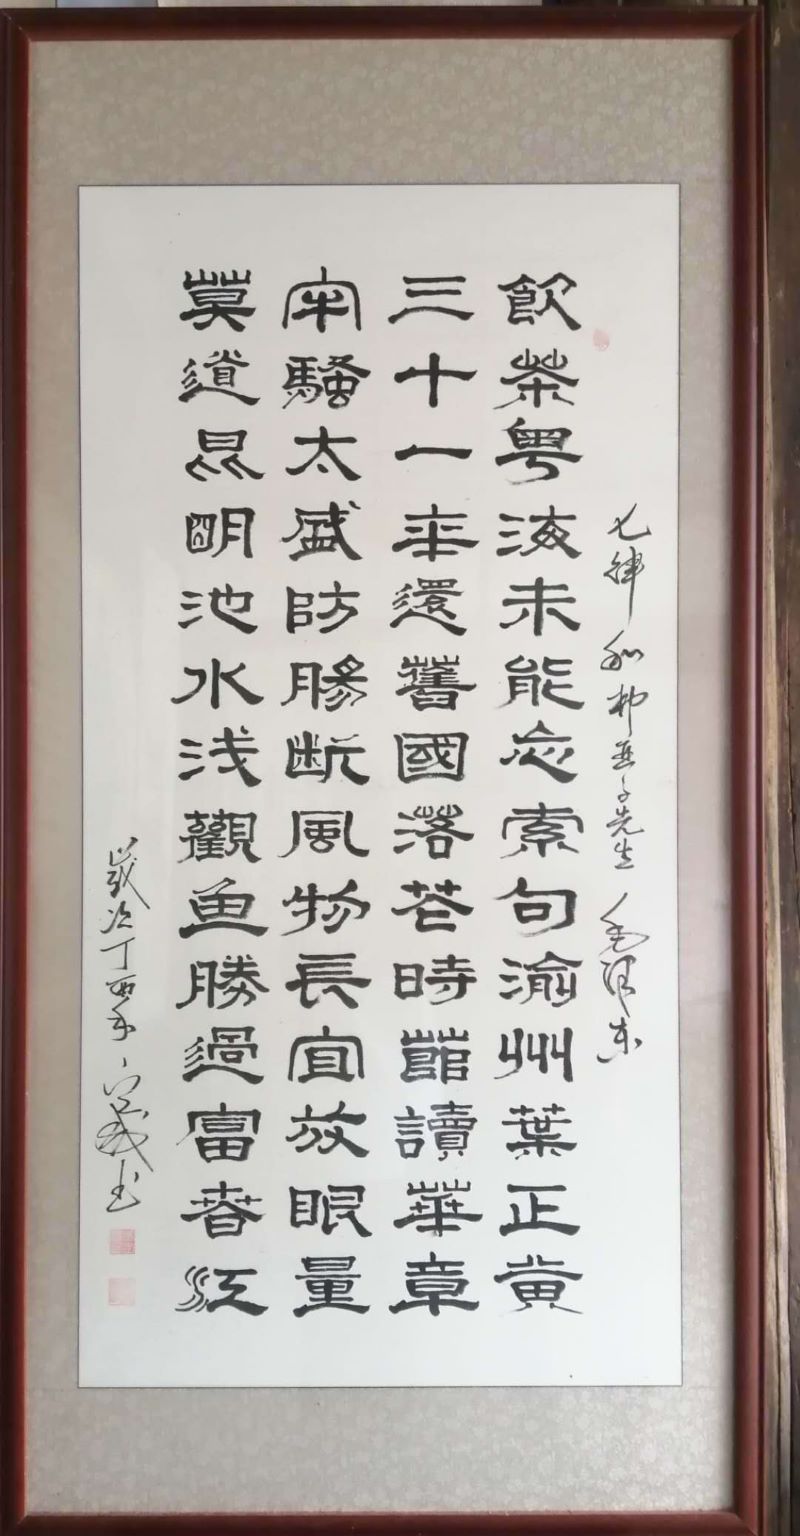 七律 和柳亞子先生 毛泽东
飲茶粤海未能忘索句渝州葉正黄
三十一年還舊國落花時節讀華章
牢騷太盛防腸断風物長宜放眼量
莫道昆明池水浅觀鱼勝過富春江
歲次丁酉年 书